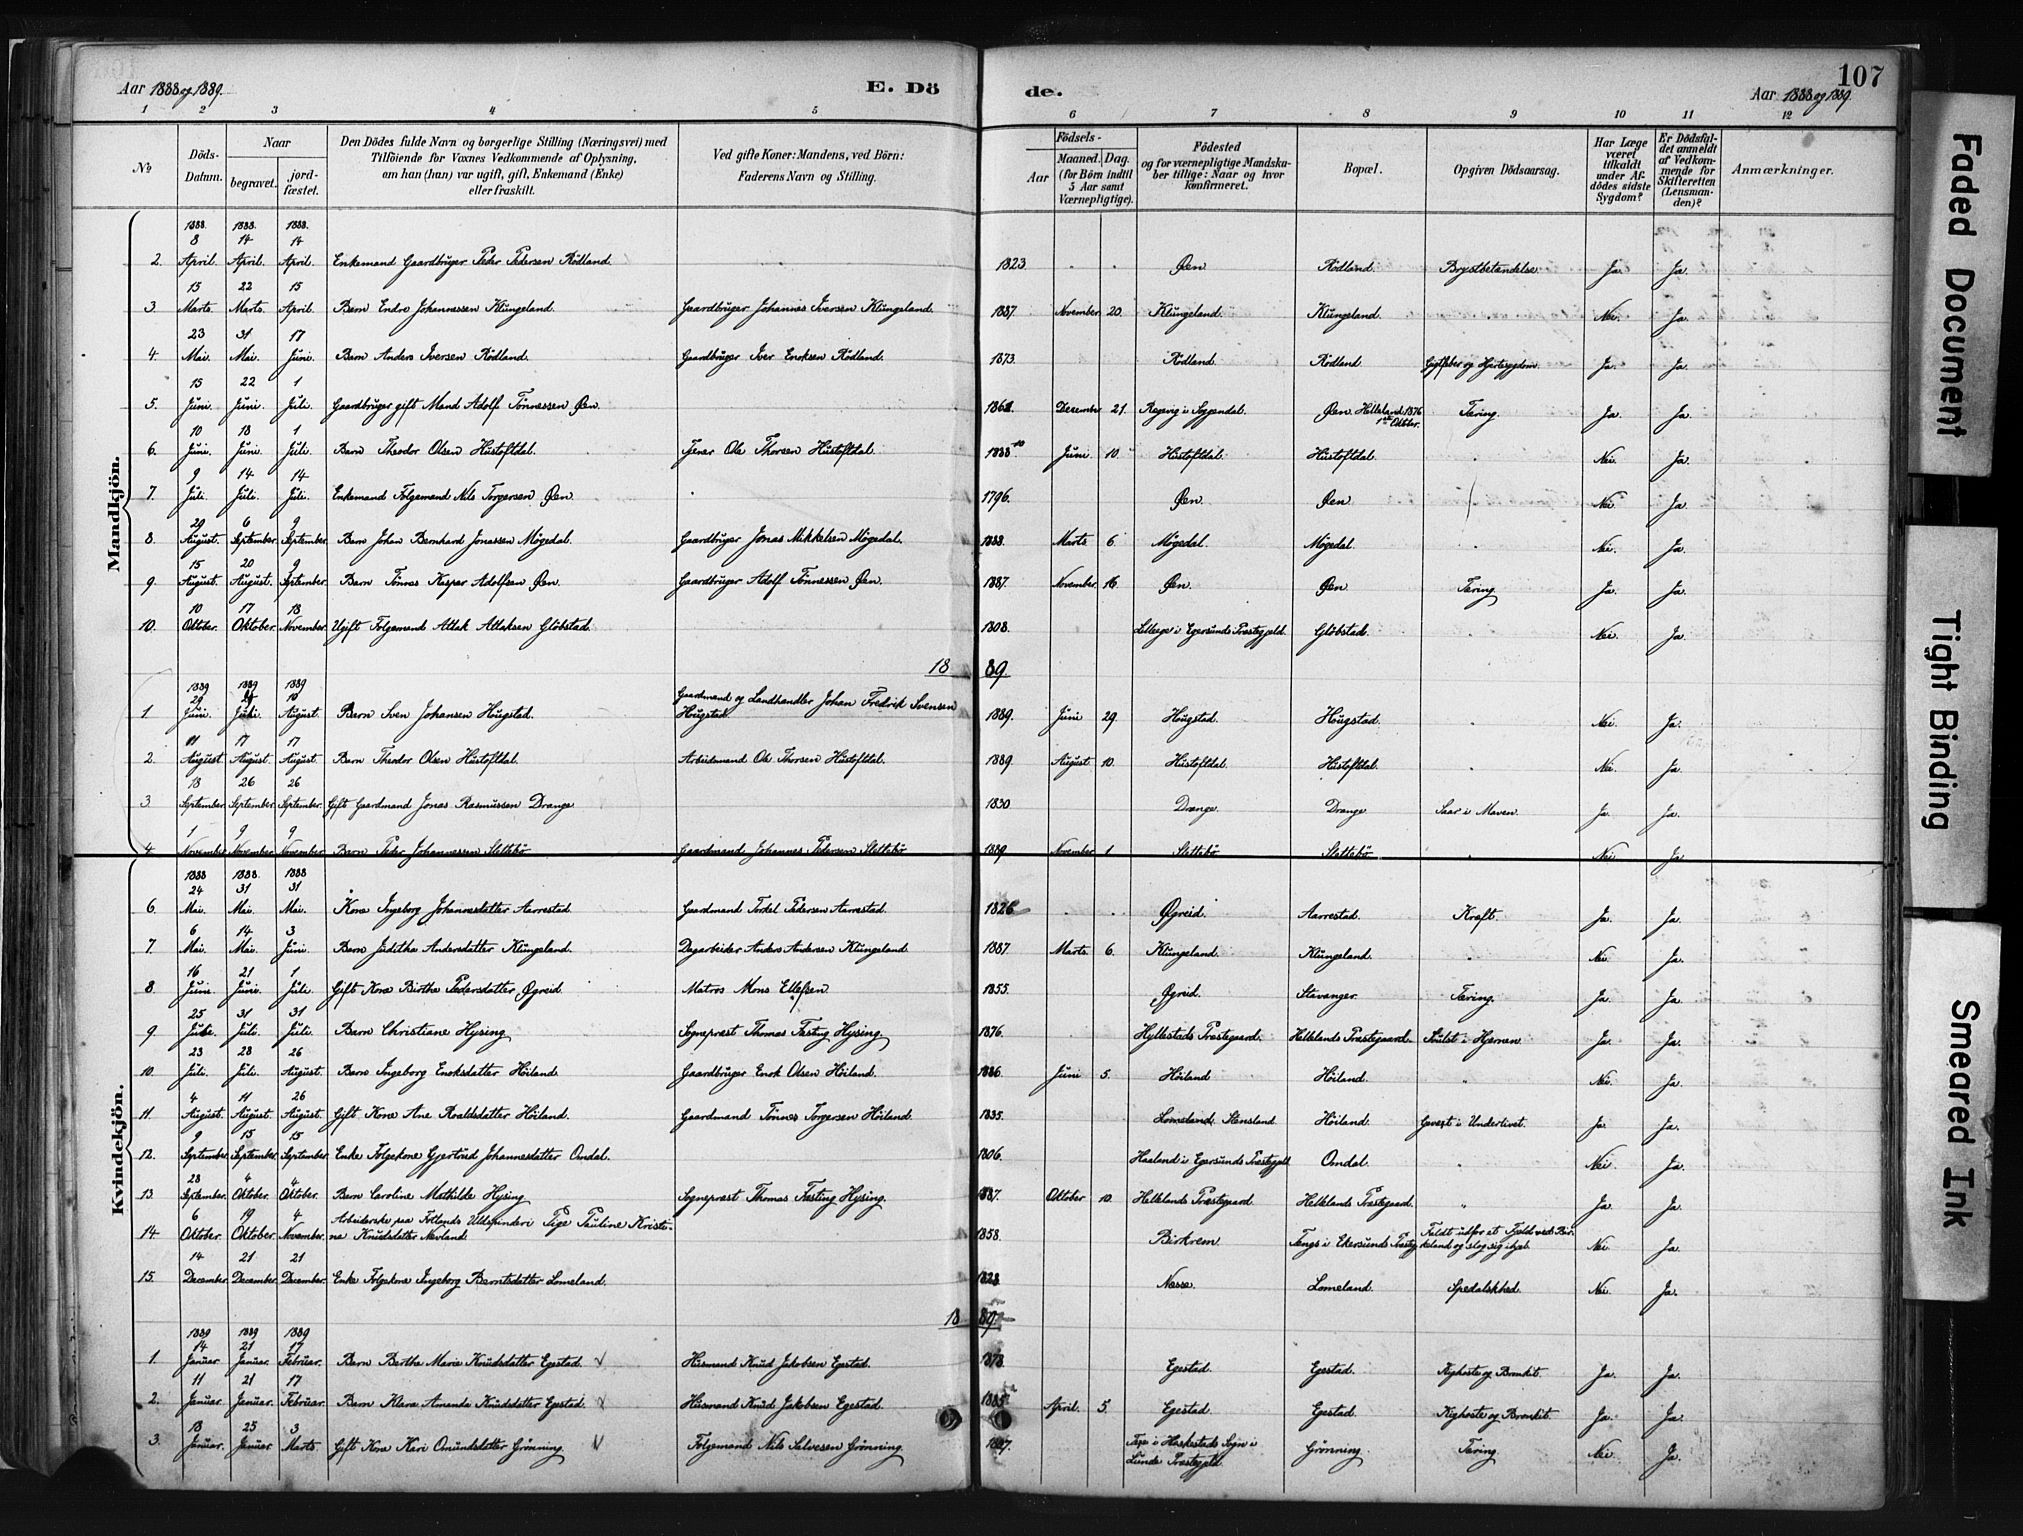 Aar 1888 og 1889.
E. Dö
de.
107
Aar 1888 og 1889.
1 2 3 4 5 6 7 8 9 10 11 12
No
Döds-Datum.
Naar
begravet.
jordfæstet.
Den Dödes fulde Navn og borgerlige Stilling (Næringsvei) med Tilföiende for Voxnes Vedkommende af Oplysning, om han (hun) var ugift, gift, Enkemand (Enke) eller fraskilt.
Ved gifte Koner: Mandens, ved Börn: Faderens Navn og Stilling.
Födsels-
Aar
Maaned. Dag.
(for Börn indtil 5 Aar samt Værnepligtige).
Födested og for værnepligtige Mandskaber tillige: Naar og hvor konfirmeret.
Bopæl.
Opgiven Dödsaarsag.
Har Læge været tilkaldt under Afdödes sidste Sygdom?
Er Dödsfaldet anmeldt af Vedkommende for Skifteretten (Lensmanden)?
Anmærkninger.
Mandkjön.
1888 1888 1888
2. 8 April. 14 April. 14 April. Enkemand Gaardbruger Peder Pedersen Rødland. 1823 Øen Rødland. Brystbetændelse Ja Ja.
3. 15 Marts. 22 Marts. 15 April. Barn Endre Johannessen Klungeland. Gaardbruger Johannes Iversen Klungeland. 1887. November 20. Klungeland. Klungeland. Nei. Ja.
4. 23 Mai. 31 Mai. 17 Juni. Barn Anders Iversen Rødland. Gaardbruger Iver Enoksen Rødland. 1873. Rødland. Rødland Gigtfeber og Hjertesygdom Ja. Ja.
5. 15 Juni. 22 Juni. 1 Juli. Gaardbruger gift Mand Adolf Tønnessen Øen. Dezember 21. i Soggendal. Øen. Helleland 1876 1ste Oktober. Tæring. Ja. Ja.
6. 10 Juni. 18 Juni. 1 Juli. Barn Theodor Olsen Hustoftdal. Ole Thorsen Hustoftdal. 1888 Juni 10. Hustoftdal. Hustoftdal. Nei. Ja.
7. 9 Juli. 14 Juli. 14 Juli. Enkemand Folgemand Nils Torgersen Øen. 1796. Øen. Øen Nei. Ja.
8. 29 August. 6 September. 9 September. Barn Johan Bernhard Jonassen Møgedal. Gaardbruger Jonas Mikkelsen Møgedal. 1888. Marts 6. Møgedal. Møgedal Nei. Ja.
9. 15 August. 20 August. 9 September. Barn Tønnes Kasper Adolfsen Øen. Gaardbruger Adolf Tønnessen Øen. 1887. November 16. Øen. Øen. Tæring. Ja. Ja.
10. 10 Oktober. 17 Oktober. 18 November. Ugift Folgemand Atlak Atlaksen Gløbstad. 1808. i Egersunds Præstegjeld Gløbstad. Nei. Ja.
1889
1889 1889 1889
1 29 Juni. 10 August. Barn Sven Johansen Hougstad. Gaardmand og Landhandler Johan Fredrik Svensen Hougstad 1889. Juni 29. Hougstad. Hougstad. Nei. Ja.
2. 11 August 17 August. 17 August. Barn Theodor Olsen Hustoftdal. Arbeidsmand Ole Thorsen Hustoftdal. 1889. August 10. Hustoftdal. Hustoftdal. Nei. Ja
3 18 September. 26 September. 26 September. Gift Gaardmand Jonas Rasmussen Drange 1830 Drange. Drange Saar i Maven. Ja. Ja.
4. 1 November 9 November 9 November Barn Peder Johannessen Slettebø Gaardmand Johannes Pedersen Slettebø 1889 November 1 Slettebø Slettebø Nei. Ja
Kvindekjön.
1888 1888. 1888
6. 24 Mai. 31 Mai. 31 Mai. Kone Ingeborg Johannesdatter Aarrestad Gaardmand Torkel Pedersen Aarrestad. 1826 Øgreid. Aarrestad. Kræft. Ja. Ja.
7 6 Mai. 14 Mai. 3 Juni. Barn Juditha Andersdatter Klungeland. Dagarbeider Anders Andersen Klungeland. 1887. Marts 6. Klungeland. Klungeland. Nei. Ja.
8. 16 Juni. 21 Juni. 1 Juli. Gift Kone Birtha Pedersdatter Øgreid. Matros Mons Ellefsen. 1855. Øgreid. Stavanger. Tæring. Ja. Ja.
9 25 Juli. 31 Juli. 31 Juli. Barn Christiane Hysing Sognepræst Thomas Fasting Hysing. 1876. Hyllestads Præstegaard. Hellelands Præstegaard. Svulst i Hjernen Ja. Ja.
10. 23 Juli. 28 Juli. 26 August. Barn Ingeborg Enoksdatter Høiland. Gaardbruger Enok Olsen Høiland. 1886. Juni 5. Høiland Høiland. Nei. Ja
11 4 August. 11 August. 26 August. Gift Kone Ane Roaldsdatter Høiland. Gaardmand Tønnes Torgersen Høiland 1835. Stensland Høiland. i Underlivet. Ja. Ja.
12. 9 September. 15 September. 15 September. Enke Folgekone Gjertrud Johannesdatter Omdal. 1806. Haaland i Egersunds Præstegjeld Omdal. Nei Ja
13 28 September. 4 Oktober. 4 Oktober. Barn Caroline Mathilde Hysing Sognepræst Thomas Fasting Hysing. 1887. Oktober 10. Hellelands Præstegaard Hellelands Præstegaard. Ja. Ja.
14. 6 Oktober. 19 Oktober. 4 November. Arbeiderske paa Fotlands Uldspinderi Pige Pauline Kristine Knudsdatter Nevland. 1858. Birkrem. Tengs i Ekersunds Præstegj. Faldt udfor et Fjeld ved Birkeland og slog sig ihjel. Nei. Ja.
15. 14 December. 21 December. 21 December. Enke Folgekone Ingeborg Berntsdatter Lomeland. 1828 Nesse. Lomeland. Spedalskhed. Nei. Ja.
1889
1889 1889 1889
1. 14 Januar. 21 Januar. 17 Februar. Barn Bertha Marie Knudsdatter Egestad. Husmand Knud Jakobsen Egestad. 1878. Egestad. Egestad. Kighoste og Bronkit. Ja. Ja.
2. 11 Januar. 21 Januar. 17 Februar. Barn Klara Amanda Knudsdatter Egestad. Husmand Knud Jakobsen Egestad. 1885. April. 5. Egestad. Egestad. Kighoste og Bronkit. Ja. Ja.
3. 18 Januar. 25 Januar 3 Marts. Gift Kone Kari Omundsdatter Grønning. Folgemand Nils Salvesen Grønning. i Heskestads Sogn i Lunde Præstegjeld Grønning. Tæring Nei. Ja.
Faded Document
Tight Binding
Smeared Ink